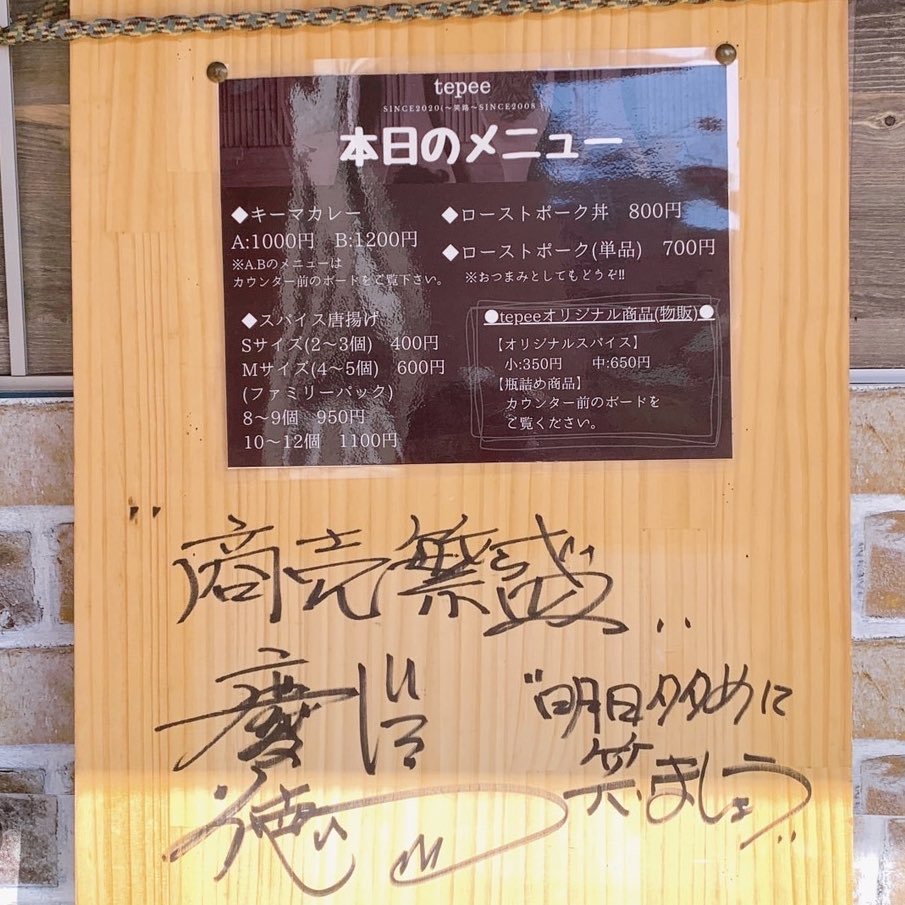 tepee
SINCE2020(～笑路～SINCE2008)
本日のメニュー
◆キーマカレー
A:1000円 B:1200円
※A.Bのメニューは
カウンター前のボードをご覧下さい。
◆スパイス唐揚げ
Sサイズ(2～3個) 400円
Mサイズ(4～5個) 600円
(ファミリーパック)
8～9個 950円
10～12個 1100円
◆ローストポーク丼 800円
◆ローストポーク(単品) 700円
※おつまみとしてもどうぞ!!
●tepeeオリジナル商品(物販)●
【オリジナルスパイス】
小:350円 中:650円
【瓶詰め商品】
カウンター前のボードを
ご覧ください。
"商売繁盛"
"明日多めに
笑いましょう"